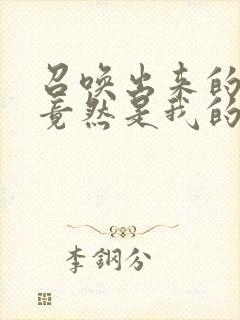 召唤出来的
竟然是我的
李钢分